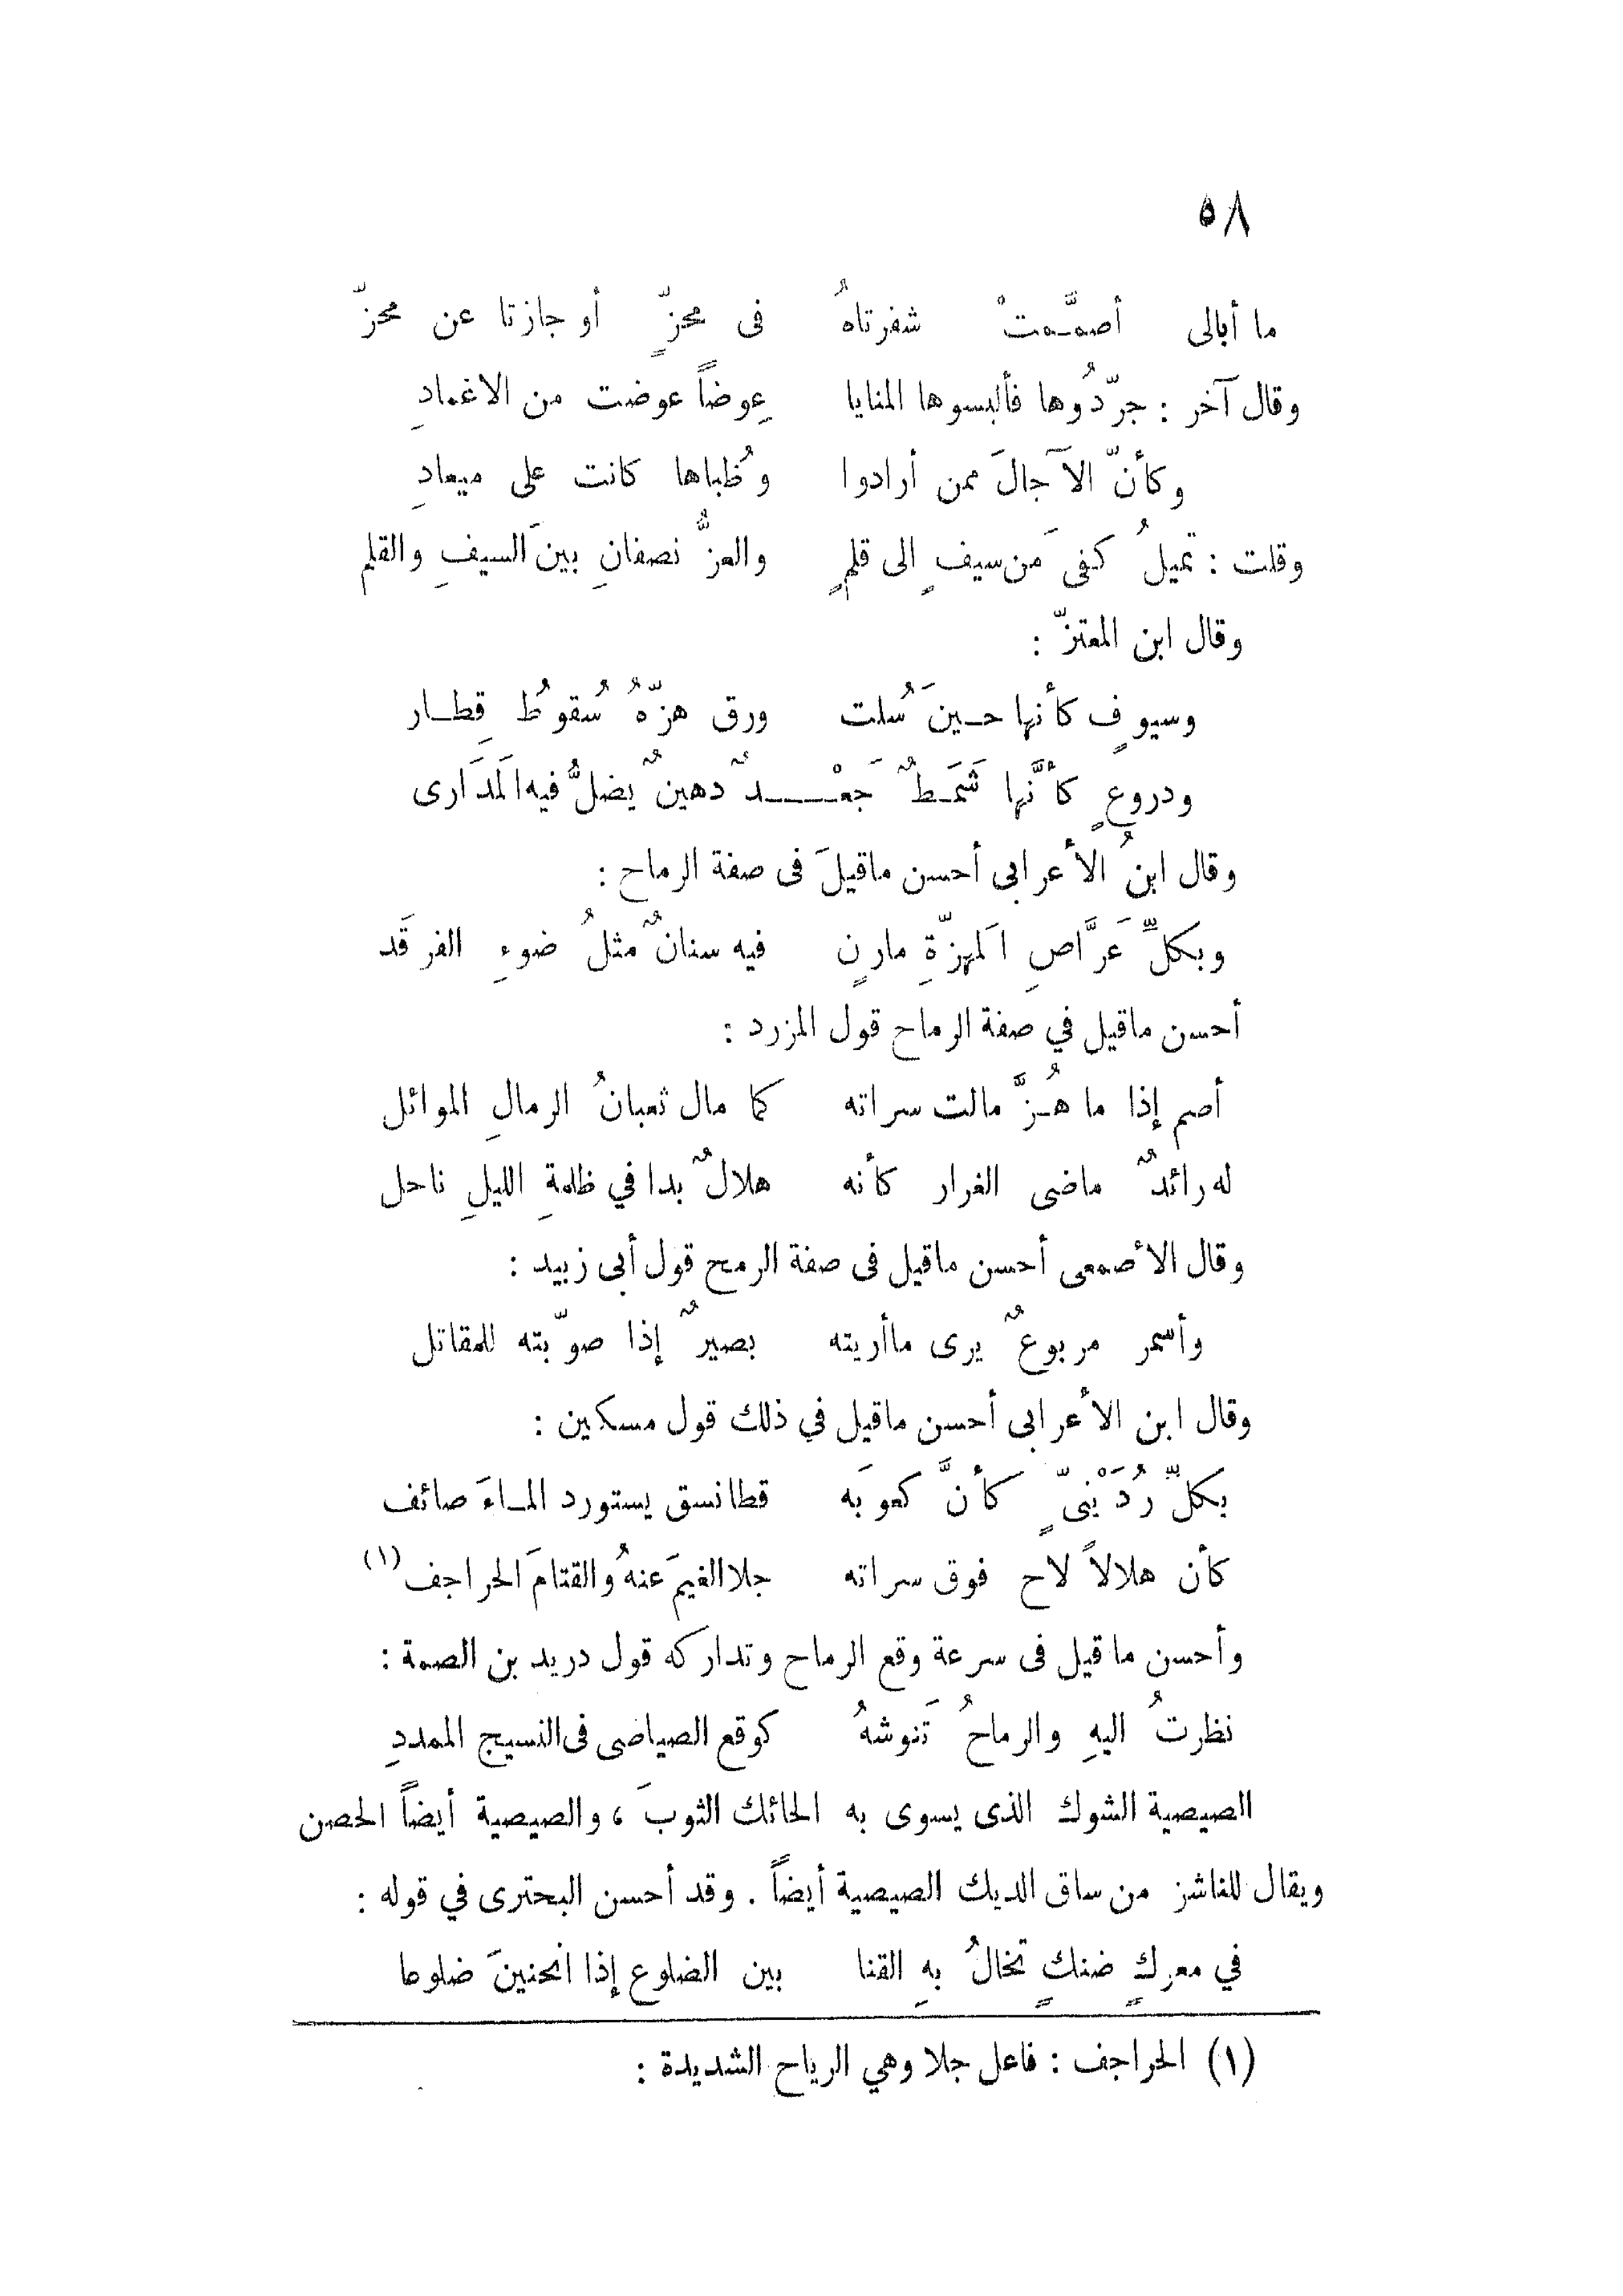 ٥٨
ما أبالى أصمَّمتْ شفرتاهُ فى محزٍّ أو جازتا عن محزّ
وقال آخر : جرّدُوها فألبسوها المنايا عِوضاً عوضت من الاغمادِ
وكأنّ الآجالَ ممن أرادوا وُظباها كانت على ميعادِ
وقلت : تميلُ كفى مَن سيفٍ الى قلمٍ والعزُّ نصفانِ بينَ السيفِ والقلم
وقال ابن المعتزّ :
وسيوفٍ كأنها حينَ سُلت ورق هزّهُ سُقوطُ قِطار
ودروعٍ كأنَّها شَمَطٌ جَعْدٌ دهينٌ يضلُّ فيه المَدَارى
وقال ابنُ الأعرابى أحسن ماقيلَ فى صفة الرماح :
وبكلِّ عَرَّاصِ المَهزّةِ مارنٍ فيه سنانٌ مثلُ ضوءِ الفرقَد
أحسن ماقيل في صفة الرماح قول المزرد :
أصم إذا ما هُزَّ مالت سراته كما مال ثعبانُ الرمالِ الموائل
له رائدٌ ماضى الغرار كأنه هلالٌ بدا في ظلمةِ الليلِ ناحل
وقال الأصمعى أحسن ماقيل فى صفة الرمح قول أبى زبيد :
وأسمر مربوعٌ يرى ماأريته بصيرٌ إذا صوّبته للمقاتل
وقال ابن الأعرابى أحسن ماقيل في ذلك قول مسكين :
بكلِّ رُدَيْنىٍّ كأنَّ كعوبَه قطانسق يستورد الماءَ صائف
كأن هلالاً لاح فوق سراته جلا الغيمَ عنهُ والقتامَ الحراجف (١)
وأحسن ماقيل فى سرعة وقع الرماح وتداركه قول دريد بن الصمة :
نظرتُ اليهِ والرماحُ تَنوشهُ كوقع الصياصى فى النسيج الممددِ
الصيصية الشوك الذى يسوى به الحائك الثوبَ ، والصيصية أيضاً الحصن
ويقال للناشز من ساق الديك الصيصية أيضاً . وقد أحسن البحترى في قوله :
في معركٍ ضنكٍ تخالُ بهِ القنا بين الضلوع إذا انحنينَ ضلوعا
(١) الحراجف : فاعل جلا وهي الرياح الشديدة :